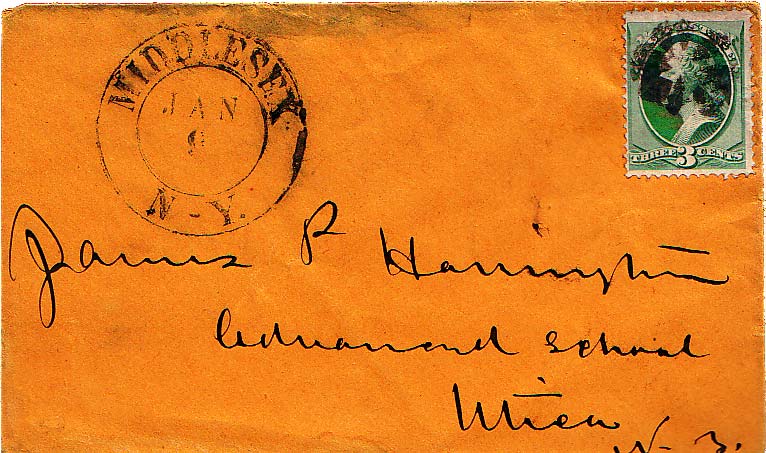 MIDDLESEX
JAN
9
N-Y.
THREE 3 CENTS
James P Harrington
Advanced School
Utica
N. Y.